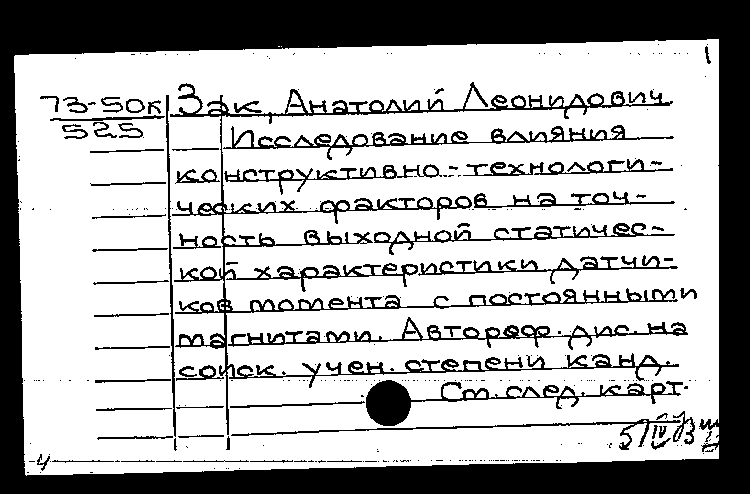 1
73-50к Зак, Анатолий Леонидович
525
Исследование влияния
конструктивно-технологи-
ческих факторов на точ-
ность выходной статичес-
кой характеристики датчи-
ков момента с постоянными
магнитами. Автореф. дис. на
соиск. учен. степени канд.
См. след. карт.
5/IV
4